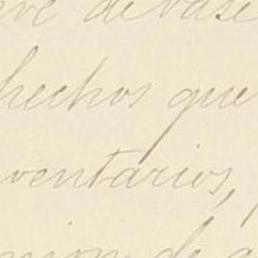 de base
hechos que
ventarios,
de